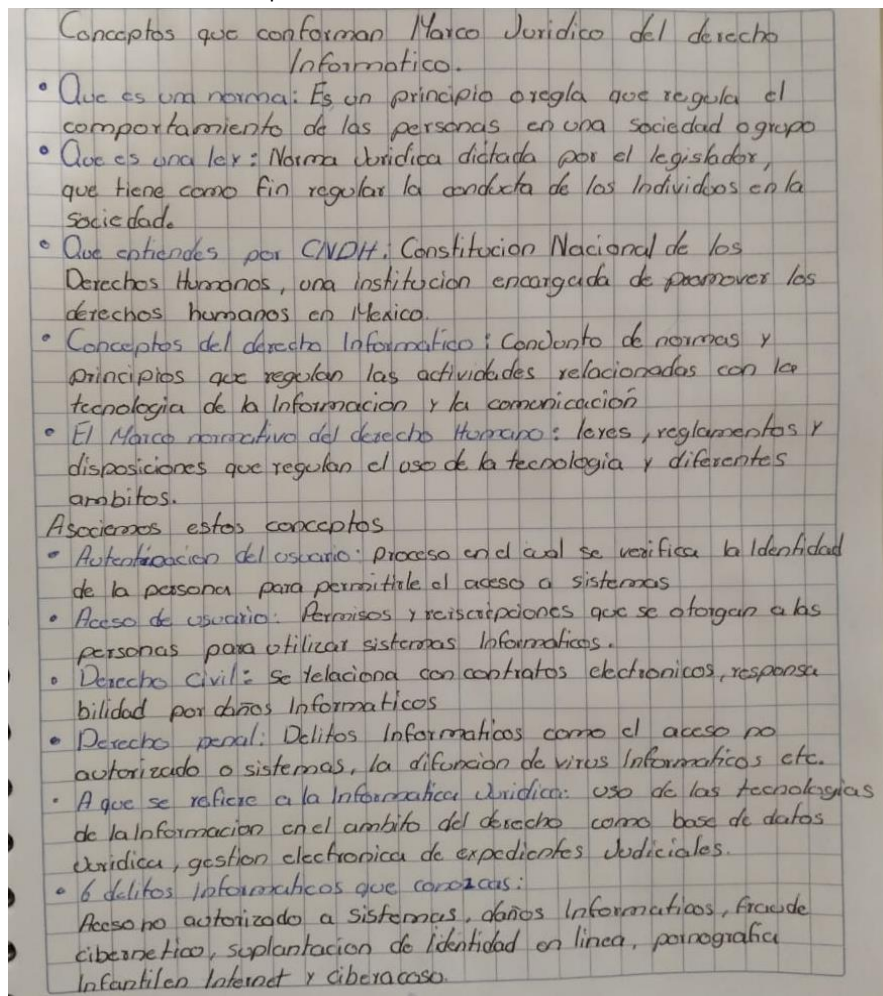 Conceptos que conforman Marco Juridico del derecho
Informatico.
• Que es una norma: Es un principio o regla que regula el
comportamiento de las personas en una sociedad o grupo
• Que es una ley: Norma Juridica dictada por el legislador,
que tiene como fin regular la conducta de los Individuos en la
sociedad.
• Que entiendes por CNDH: Constitucion Nacional de los
Derechos Humanos, una institucion encargada de promover los
derechos humanos en Mexico.
• Conceptos del derecho Informatico: Conjunto de normas y
principios que regulan las actividades relacionadas con la
tecnologia de la Informacion y la comunicación
• El Marco normativo del derecho Humano: leyes, reglamentos y
disposiciones que regulan el uso de la tecnologia y diferentes
ambitos.
Asociemos estos conceptos
• Autenticacion del usuario: proceso en el cual se verifica la Identidad
de la persona para permitirle el acceso a sistemas
• Acceso de usuario: Permisos y reiscripciones que se otorgan a las
personas para utilizar sistemas Informaticos.
• Derecho Civil: se relaciona con contratos electronicos, responsa
bilidad por daños Informaticos
• Derecho penal: Delitos Informaticos como el acceso no
autorizado o sistemas, la difuncion de virus Informaticos etc.
• A que se refiere a la Informatica Juridica: uso de las tecnologias
de la Informacion en el ambito del derecho como base de datos
Juridica, gestion electronica de expedientes Judiciales.
• 6 delitos Informaticos que conozcas:
Acceso no autorizado a sistemas, daños Informaticos, fraude
cibernetico, suplantacion de Identidad en linea, pornografia
Infantil en Internet y ciberacoso.